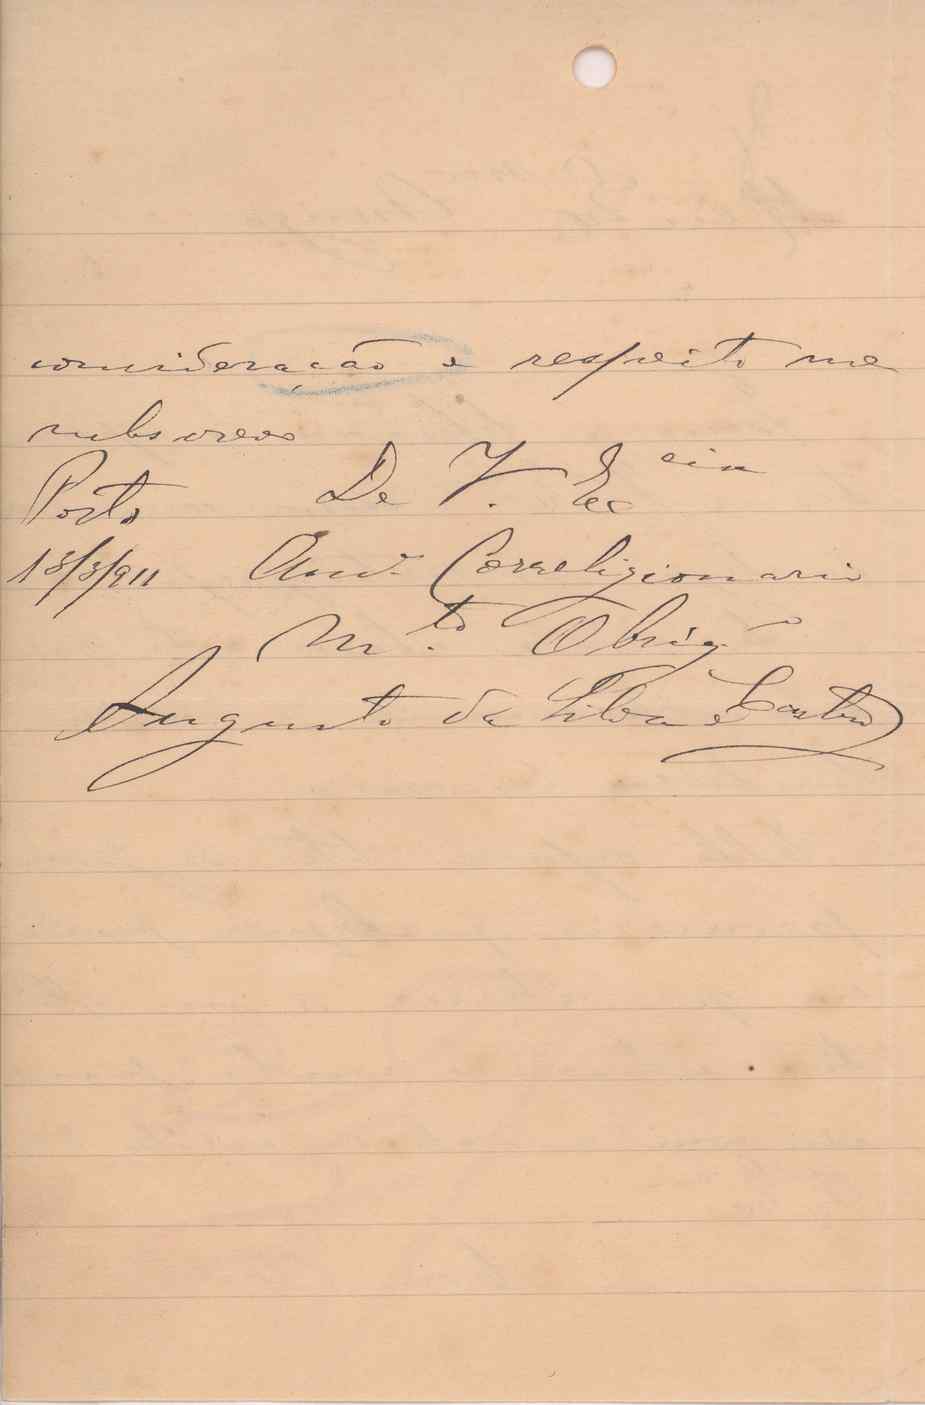 consideração e respeito me
subscrevo
Porto De V. Ex cia
13/3/911 Am.º Correligionario
M.to Obrig.º
Augusto da Silva e Castro